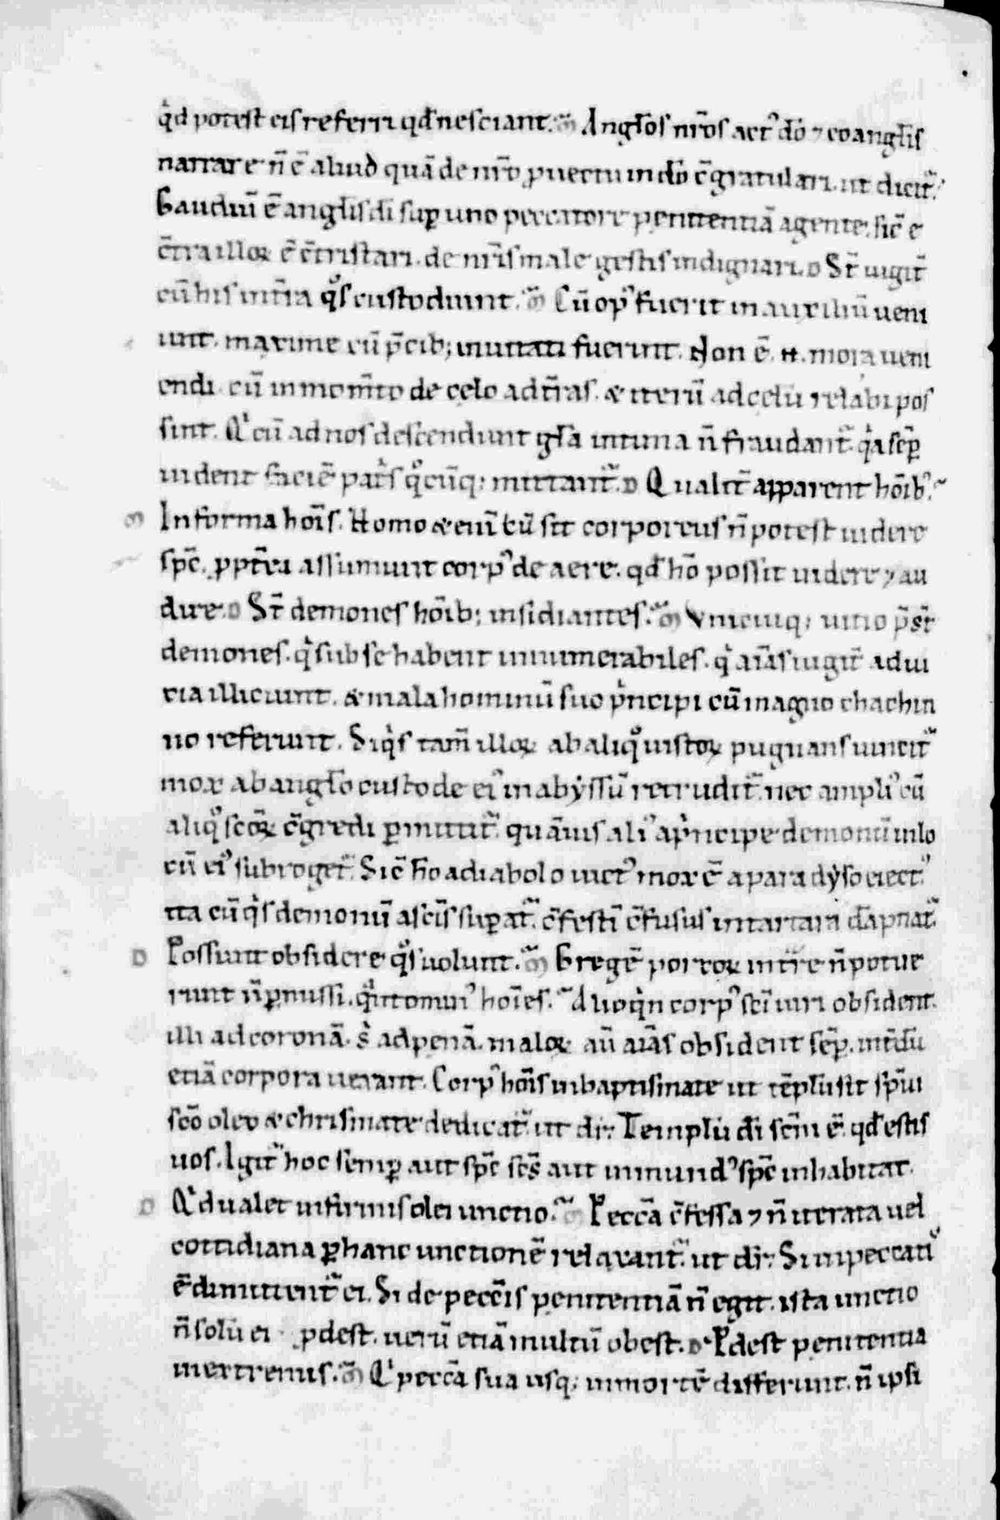 q̇d potest eis referri qđ nesciant. Angłos nr̄os act᷒ dō ⁊ eo angłis
narrare n̄ ē aliud quā de nr̄o ꝓuectu in dō c̄gratulari. ut dicit᷑.
Gaudiū ē angłis di suꝑ uno peccatore penitentiā agente. sic̄ e
c̄tra illoꝝ ē c̄tristari. de nr̄is male gestis indignari. D St̄ uigit̄
cū his int̄ia q̊s custodiunt. M̄ Cū op᷒ fuerit in auxiliū ueni
unt. maxime cū p̄cib; inuitati fuerint. Non ē. n. mora ueni
endi. cū in mom̄to de celo ad t̄ras. & iterū ad celū relabi pos
sint. Q̇ cū ad nos descendunt gła intima n̄ fraudant᷑. q̇a sēꝑ
uident faciē pat̓s q̊cūq; mittant᷑. D Qualit̄ apparent hōib᷒.
M In forma hoīs. Homo & enī cū sit corporeus n̄ potest uidere
spc̄. ꝓpt̄ea assumunt corp᷒ de aere. qđ hō possit uidere ⁊ au
dire. D St̄ demones hōib; insidiantes. M̄ Vnicuiq; uitio p̄st̄
demones. q̇ sub se habent innumerabiles. q̇ aīas iugit̄ ad ui
cia illiciunt. & mala hominū suo p̓ncipi cū magno chachin
no referunt. Siq̓s tam̄ illoꝝ ab aliq̊ uistoꝝ pugnans uincit᷑
mox ab angło custode ei᷒ in abyssū retrudit᷑. nec ampli᷒ cū
aliq̊ sc̄oꝝ c̄gredi ꝑmittit᷑. quāuis ali᷒ a p̓ncipe demoniū in lo
cū ei᷒ subroget᷑. Sic̄ hō a diabolo uict᷒ mox ē a paradyso eiect᷒
ita cū q̓s demoniū a sc̄is suꝑat᷑. c̄festī c̄fusus in tartara dāpnat᷑
D Possunt obsidere q̊s uolunt. M̄ Gregē porcoꝝ int̄re n̄ potue
runt n̄ ꝑmissi. q̇nto min᷒ hoīes. Alioq̇n corp᷒ sc̄i uiri obsident.
illi ad coronā. s̓ ad penā. maloꝝ aū aīas obsident sēꝑ. int̄dū
etiā corpora uexant. Corp᷒ hoīs in baptismate ut tēplū sit sp̄ui
sc̄o oleo & chrismate dedicat᷑. ut dr̄. Templū di sc̄m ē. qđ estis
uos. Igit᷑ hoc semꝑ aut spc̄ sc̄s aut inmund᷒ spc̄ inhabitat.
D Q̇d ualet infirmis olei unctio. M̄ Pecc̄a c̄fessa ⁊ n̄ iterata uel
cottidiana ꝑ hanc unctionē relaxant᷑. ut dr̄. Si in peccati᷒
ē dimittent᷑ ei. Si de pecc̄is penitentiā n̄ egit. ista unctio
n̄ solū ei ꝓdest. uerū etiā multū obest. D Pdest penitentia
in extremis. M̄ Q̇ pecc̄a sua usq; in mortē differunt. n̄ ipsi